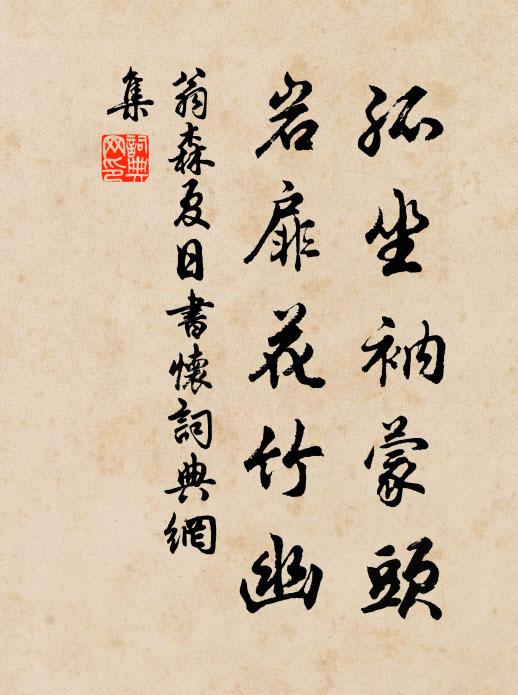 孤坐衲蒙頭
岩扉花竹幽
翁森夏日書懷詞典網
集
詞典
网印